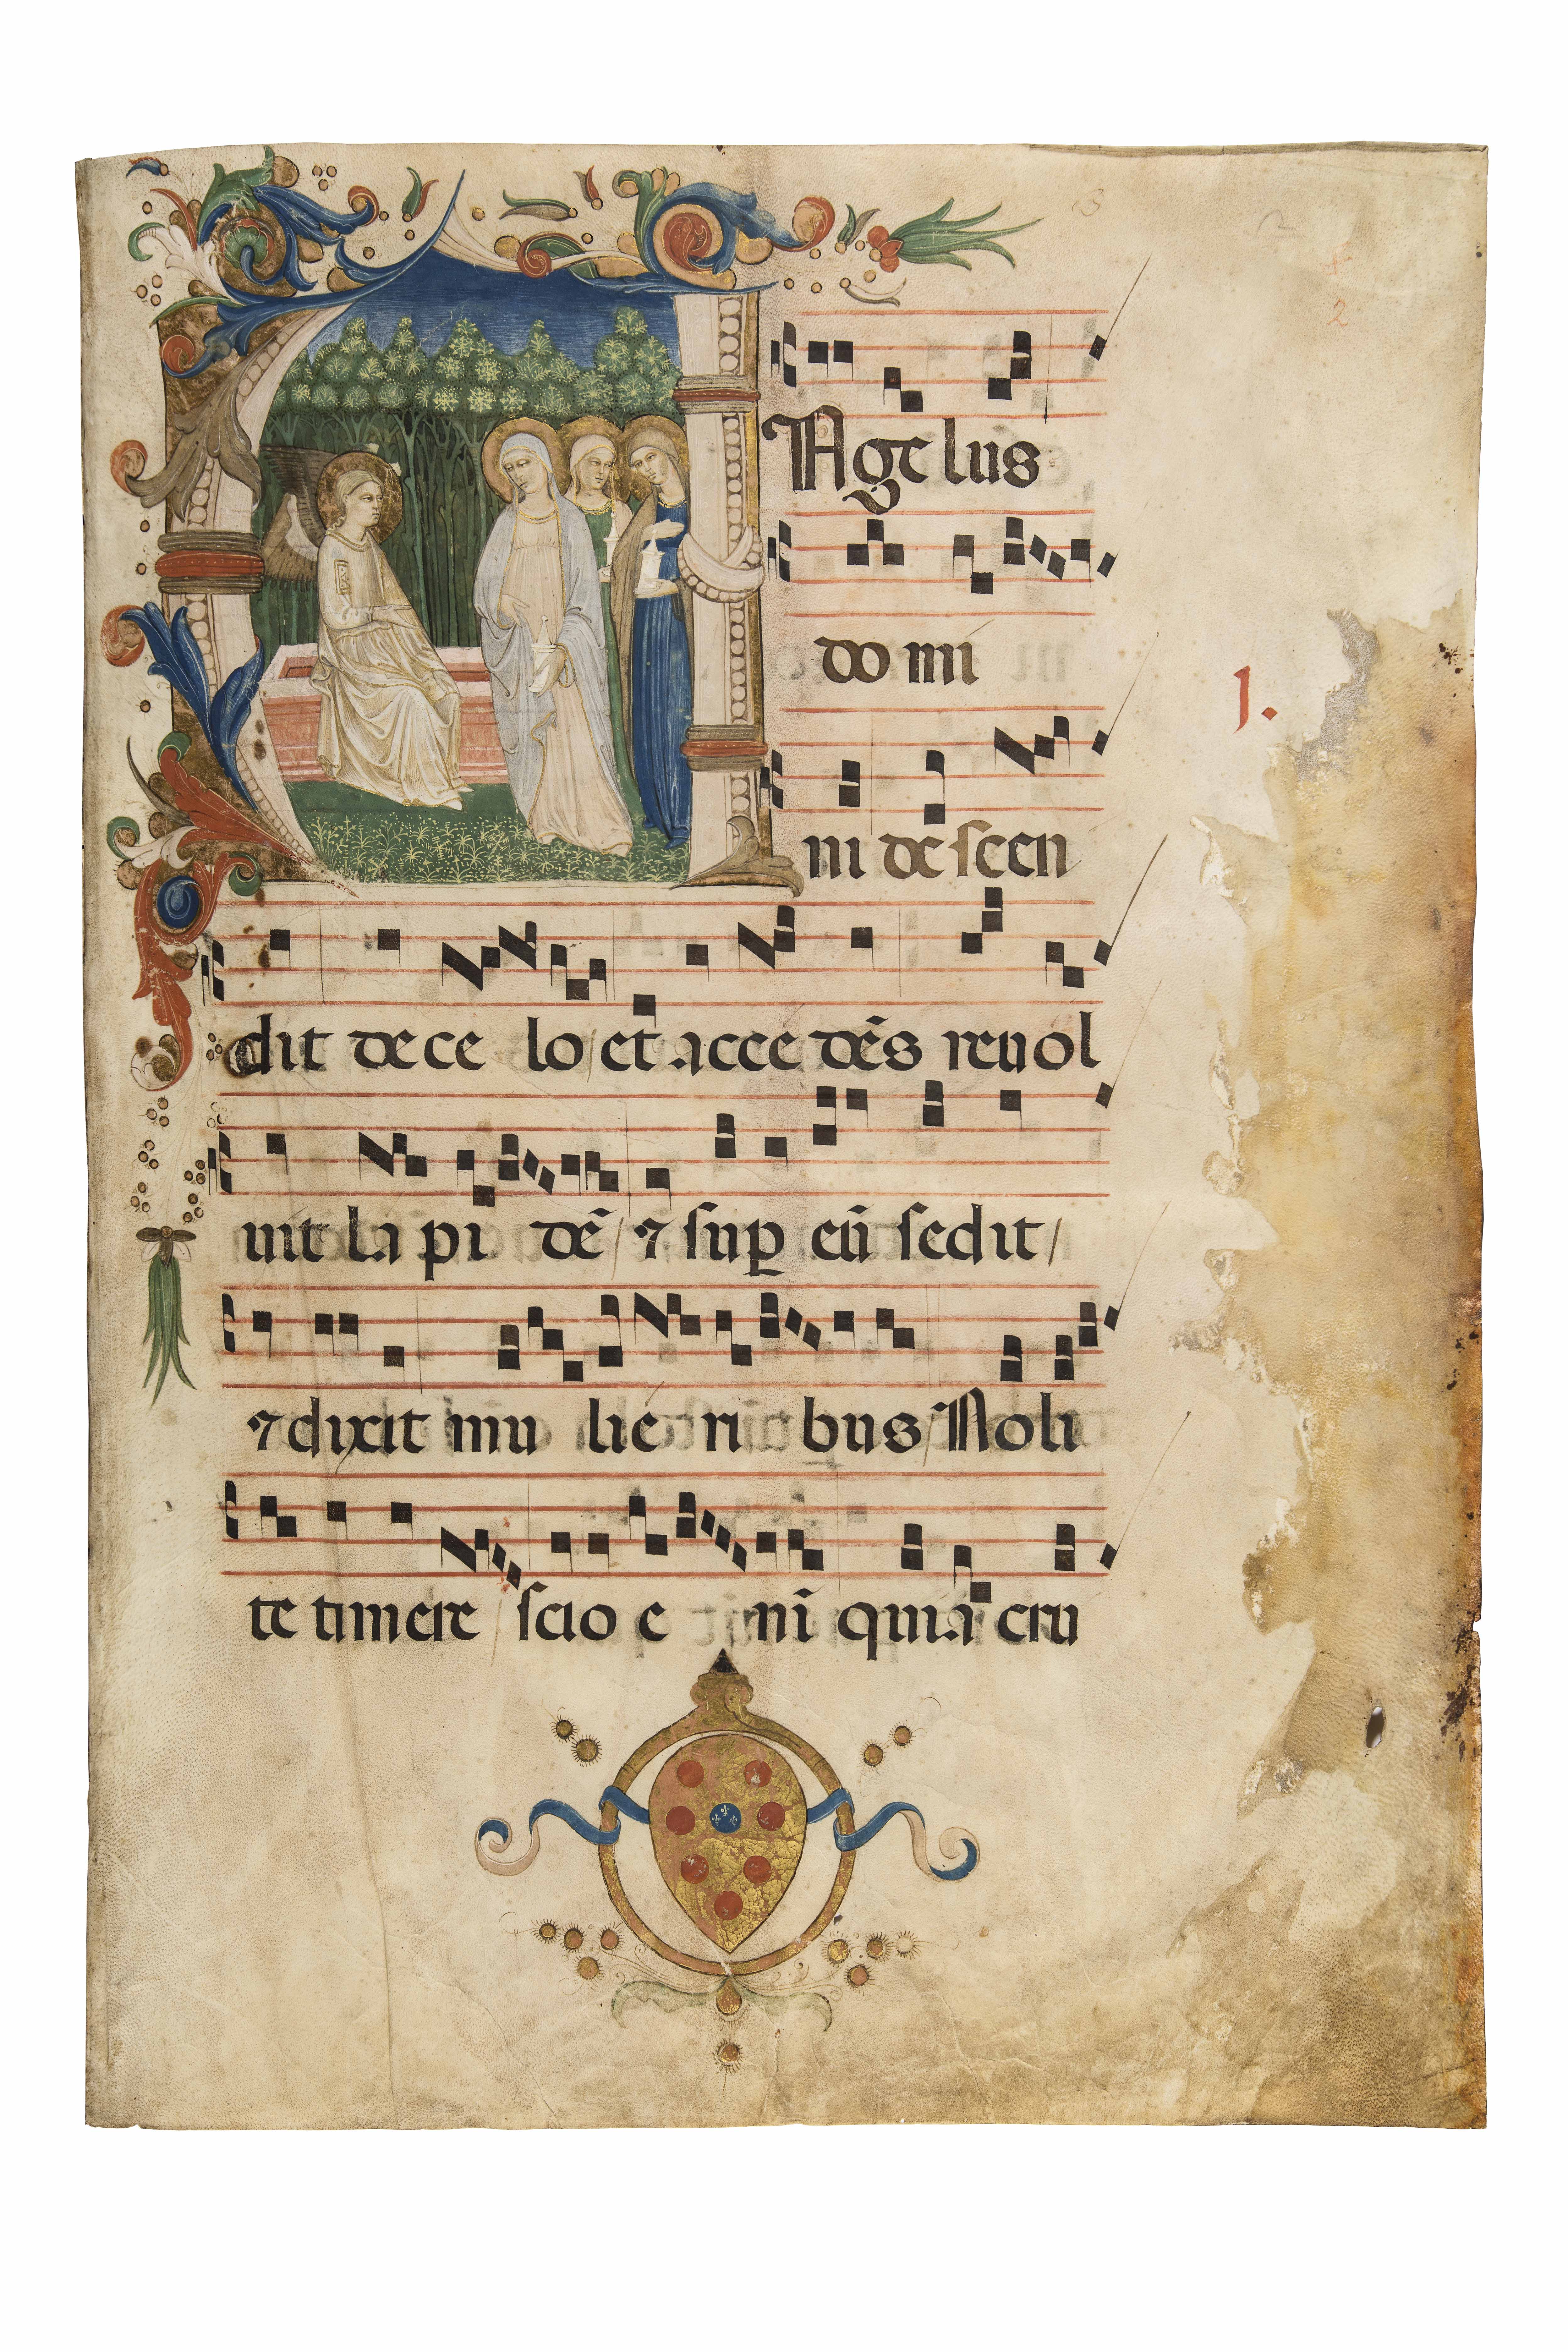 Agelus
do mi
ni de scen
dit de ce lo / et acce dēs reuol
uit la pi dē / ⁊ sup eū sedit /
⁊ dixit mu lie ri bus / Noli
te timere / scio e nī quia cru
1.
2